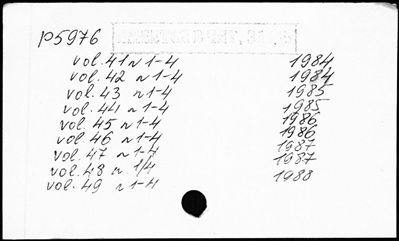 p5976
vol. 41 n 1-4 1984
vol. 42 n 1-4 1984
vol. 43 n 1-4 1985
vol. 44 n 1-4 1985
vol. 45 n 1-4 1986
vol. 46 n 1-4 1986
vol. 47 n 1-4 1987
vol. 48 n 1/4 1987
vol. 49 n 1-4 1988